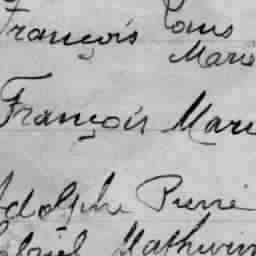 François Louis
Marie
François Marie
Adolphe Pierre
Gabriel Mathurin